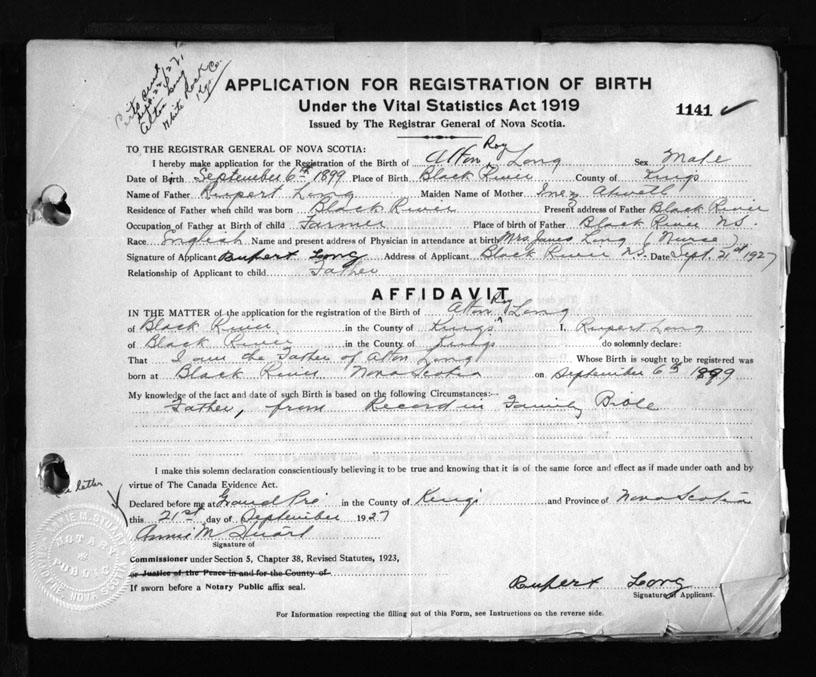 Alton Long
White Rock
APPLICATION FOR REGISTRATION OF BIRTH
Under the Vital Statistics Act 1919
1141 ✓
Issued by The Registrar General of Nova Scotia.
TO THE REGISTRAR GENERAL OF NOVA SCOTIA:
I hereby make application for the Registration of the Birth of Alton Roy Long Sex Male
Date of Birth September 6th 1899 Place of Birth Black River County of Kings
Name of Father Rupert Long Maiden Name of Mother Inez Atwell
Residence of Father when child was born Black River Present address of Father Black River
Occupation of Father at Birth of child Farmer Place of birth of Father Black River N.S.
Race English Name and present address of Physician in attendance at birth Mrs. James Long (Nurse)
Signature of Applicant Rupert Long Address of Applicant Black River N.S. Date Sept. 21st 1927
Relationship of Applicant to child Father
AFFIDAVIT
IN THE MATTER of the application for the registration of the Birth of Alton Roy Long
of Black River in the County of Kings I, Rupert Long
of Black River in the County of Kings do solemnly declare:
That I am the Father of Alton Long Whose Birth is sought to be registered was
born at Black River Nova Scotia on September 6th 1899
My knowledge of the fact and date of such Birth is based on the following Circumstances:—
Father, from Record in Family Bible
I make this solemn declaration conscientiously believing it to be true and knowing that it is of the same force and effect as if made under oath and by
virtue of The Canada Evidence Act.
letter
Declared before me at Grand Pré in the County of Kings and Province of Nova Scotia
this 21st day of September 1927
Annie M Stuart
Signature of
Commissioner under Section 5, Chapter 38, Revised Statutes, 1923,
or Justice of the Peace in and for the County of
If sworn before a Notary Public affix seal.
NOTARY
PUBLIC
NOVA SCOTIA
Rupert Long
Signature of Applicant.
For Information respecting the filling out of this Form, see Instructions on the reverse side.